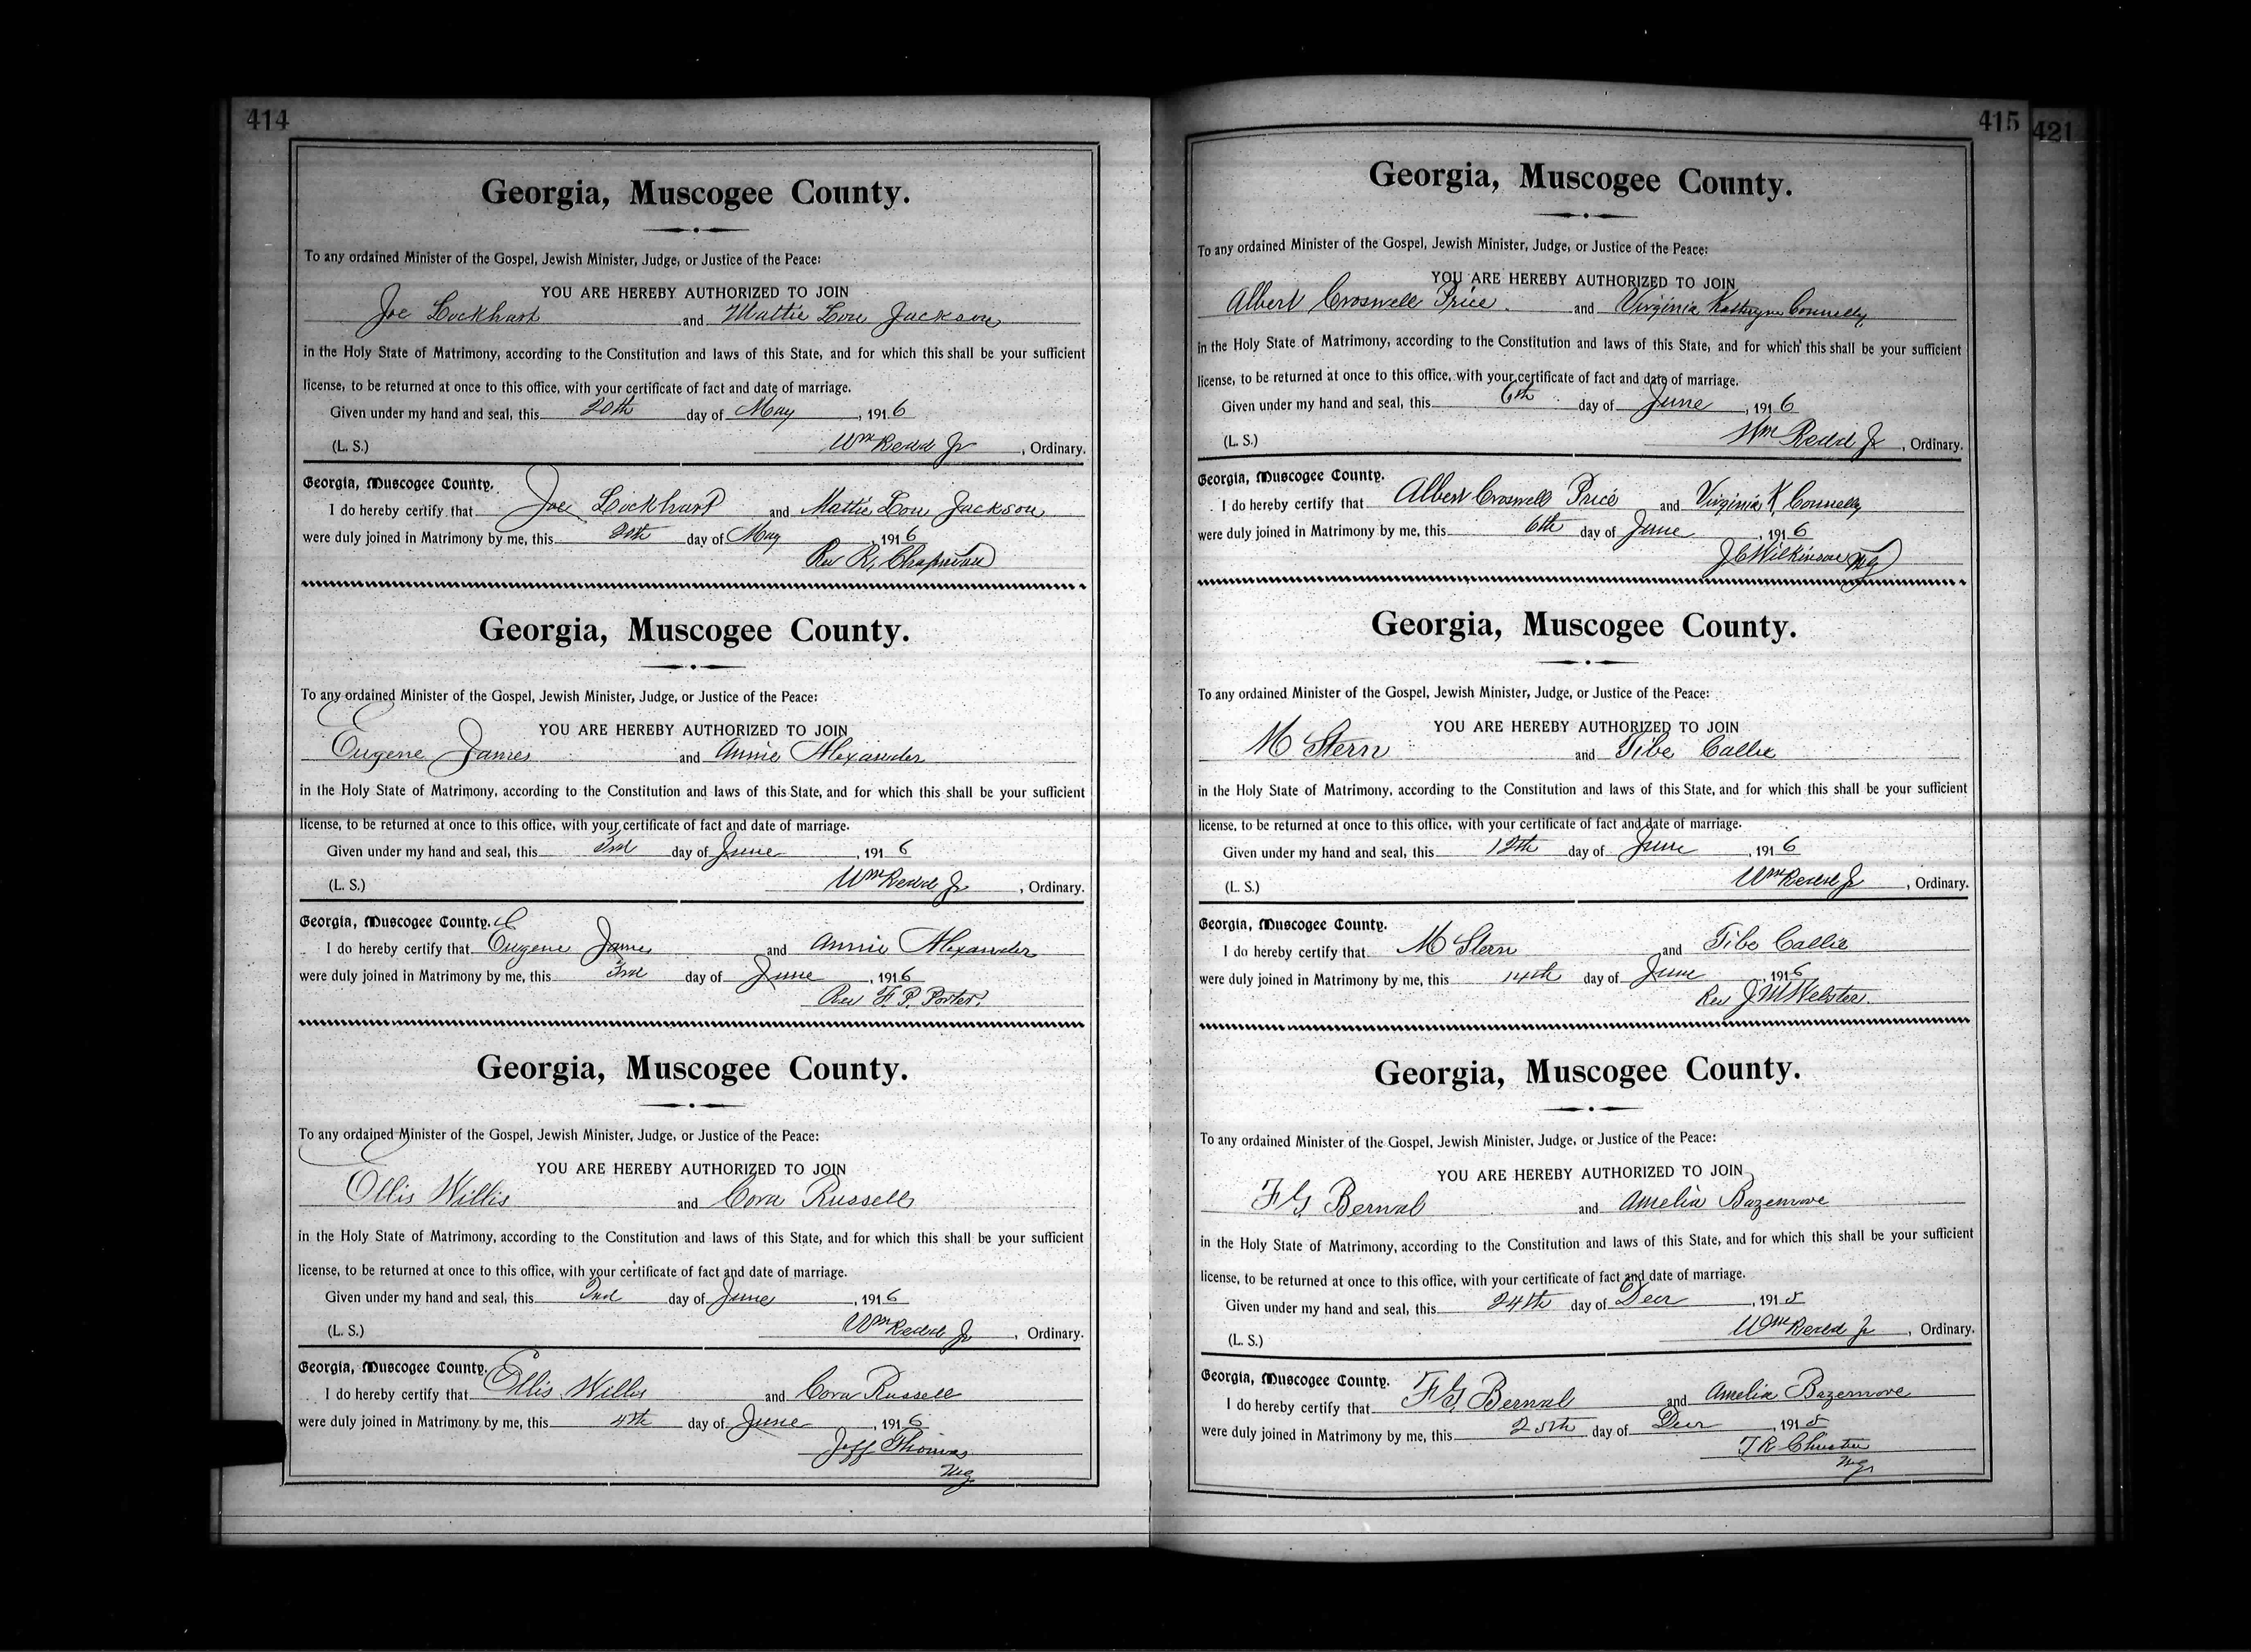 414
Georgia, Muscogee County.
To any ordained Minister of the Gospel, Jewish Minister, Judge, or Justice of the Peace:
YOU ARE HEREBY AUTHORIZED TO JOIN
Joe Lockhart and Mattie Lou Jackson
in the Holy State of Matrimony, according to the Constitution and laws of this State, and for which this shall be your sufficient
license, to be returned at once to this office, with your certificate of fact and date of marriage.
Given under my hand and seal, this 20th day of May, 1916
(L. S.) Wm Redd Jr, Ordinary.
Georgia, Muscogee County.
I do hereby certify that Joe Lockhart and Mattie Lou Jackson
were duly joined in Matrimony by me, this 20th day of May, 1916
Rev R. Chapman
Georgia, Muscogee County.
To any ordained Minister of the Gospel, Jewish Minister, Judge, or Justice of the Peace:
YOU ARE HEREBY AUTHORIZED TO JOIN
Eugene James and Annie Alexander
in the Holy State of Matrimony, according to the Constitution and laws of this State, and for which this shall be your sufficient
license, to be returned at once to this office, with your certificate of fact and date of marriage.
Given under my hand and seal, this 3rd day of June, 1916
(L. S.) Wm Redd Jr, Ordinary.
Georgia, Muscogee County.
I do hereby certify that Eugene James and Annie Alexander
were duly joined in Matrimony by me, this 3rd day of June, 1916
Rev F. P. Porter.
Georgia, Muscogee County.
To any ordained Minister of the Gospel, Jewish Minister, Judge, or Justice of the Peace:
YOU ARE HEREBY AUTHORIZED TO JOIN
Ellis Willis and Cora Russell
in the Holy State of Matrimony, according to the Constitution and laws of this State, and for which this shall be your sufficient
license, to be returned at once to this office, with your certificate of fact and date of marriage.
Given under my hand and seal, this 2nd day of June, 1916
(L. S.) Wm Redd Jr, Ordinary.
Georgia, Muscogee County.
I do hereby certify that Ellis Willis and Cora Russell
were duly joined in Matrimony by me, this 4th day of June, 1916
Jeff Thomas
M.g.
415
421
Georgia, Muscogee County.
To any ordained Minister of the Gospel, Jewish Minister, Judge, or Justice of the Peace:
YOU ARE HEREBY AUTHORIZED TO JOIN
Albert Croswell Price and Virginia Kathryne Connelly
in the Holy State of Matrimony, according to the Constitution and laws of this State, and for which this shall be your sufficient
license, to be returned at once to this office, with your certificate of fact and date of marriage.
Given under my hand and seal, this 6th day of June, 1916
(L. S.) Wm Redd Jr, Ordinary.
Georgia, Muscogee County.
I do hereby certify that Albert Croswell Price and Virginia K Connelly
were duly joined in Matrimony by me, this 6th day of June, 1916
J C Wilkinson M.g.
Georgia, Muscogee County.
To any ordained Minister of the Gospel, Jewish Minister, Judge, or Justice of the Peace:
YOU ARE HEREBY AUTHORIZED TO JOIN
M Stern and Tibe Callie
in the Holy State of Matrimony, according to the Constitution and laws of this State, and for which this shall be your sufficient
license, to be returned at once to this office, with your certificate of fact and date of marriage.
Given under my hand and seal, this 12th day of June, 1916
(L. S.) Wm Redd Jr, Ordinary.
Georgia, Muscogee County.
I do hereby certify that M Stern and Tibe Callie
were duly joined in Matrimony by me, this 14th day of June, 1916
Rev J. M Webster.
Georgia, Muscogee County.
To any ordained Minister of the Gospel, Jewish Minister, Judge, or Justice of the Peace:
YOU ARE HEREBY AUTHORIZED TO JOIN
F G Bernal and Amelia Bazemore
in the Holy State of Matrimony, according to the Constitution and laws of this State, and for which this shall be your sufficient
license, to be returned at once to this office, with your certificate of fact and date of marriage.
Given under my hand and seal, this 24th day of Decr, 1915
(L. S.) Wm Redd Jr, Ordinary.
Georgia, Muscogee County.
I do hereby certify that F G Bernal and Amelia Bazemore
were duly joined in Matrimony by me, this 25th day of Decr, 1915
T R
M.g.